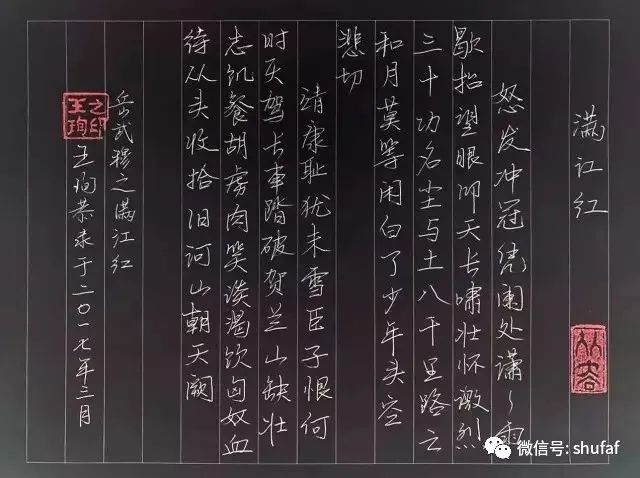 满江红
怒发冲冠凭阑处潇〻雨
歇抬望眼仰天长啸壮怀激烈
三十功名尘与土八千里路云
和月莫等闲白了少年头空
悲切
靖康耻犹未雪臣子恨何
时灭驾长车踏破贺兰山缺壮
志饥餐胡虏肉笑谈渴饮匈奴血
待从头收拾旧河山朝天阙
岳武穆之满江红
王珣恭录于二〇一七年三月
王珣之印
微信号: shufaf